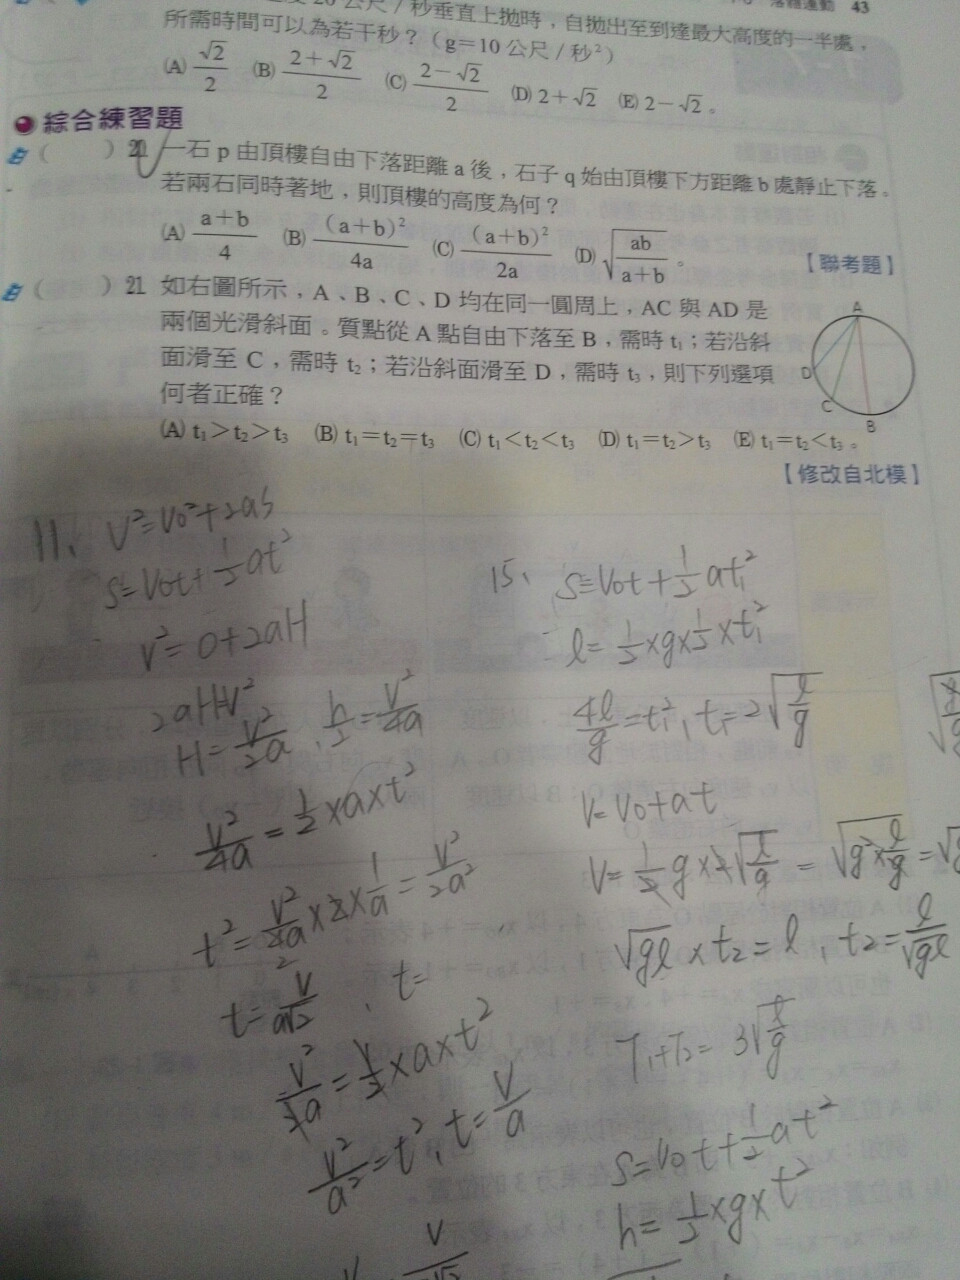 落體運動 43
20 公尺／秒垂直上拋時，自拋出至到達最大高度的一半處，
所需時間可以為若干秒？（g＝10 公尺／秒²）
(A) √2/2 (B) (2＋√2)/2 (C) (2－√2)/2 (D) 2＋√2 (E) 2－√2 。
綜合練習題
（　　）20 一石 p 由頂樓自由下落距離 a 後，石子 q 始由頂樓下方距離 b 處靜止下落。
若兩石同時著地，則頂樓的高度為何？
(A) (a＋b)/4 (B) (a＋b)²/4a (C) (a＋b)²/2a (D) √(ab/(a＋b)) 。
【聯考題】
（　　）21 如右圖所示，A、B、C、D 均在同一圓周上，AC 與 AD 是
兩個光滑斜面。質點從 A 點自由下落至 B，需時 t₁；若沿斜
面滑至 C，需時 t₂；若沿斜面滑至 D，需時 t₃，則下列選項
何者正確？
(A) t₁＞t₂＞t₃ (B) t₁＝t₂＝t₃ (C) t₁＜t₂＜t₃ (D) t₁＝t₂＞t₃ (E) t₁＝t₂＜t₃ 。
【修改自北模】
A
D
C
B
11、 V²=V0²+2aS
S=V0t+1/2at²
V²=0+2aH
2aH=V²
H=V²/2a , h/2=V²/4a
V²/4a=1/2×a×t²
t²=V²/4a×2×1/a=V²/2a²
t=V/a√2 , t=
V²/a²=t², t=V/a
15、 S=V0t+1/2at₁²
l=1/2×g×1/2×t₁²
4l/g=t₁², t₁=2√(l/g)
V=V0+at
V=1/2g×2√(l/g)=√(g²×l/g)=
√gl×t2=l , t2=l/√gl
T1+T2=3√(l/g)
S=V0t+1/2at²
h=1/2×g×t²